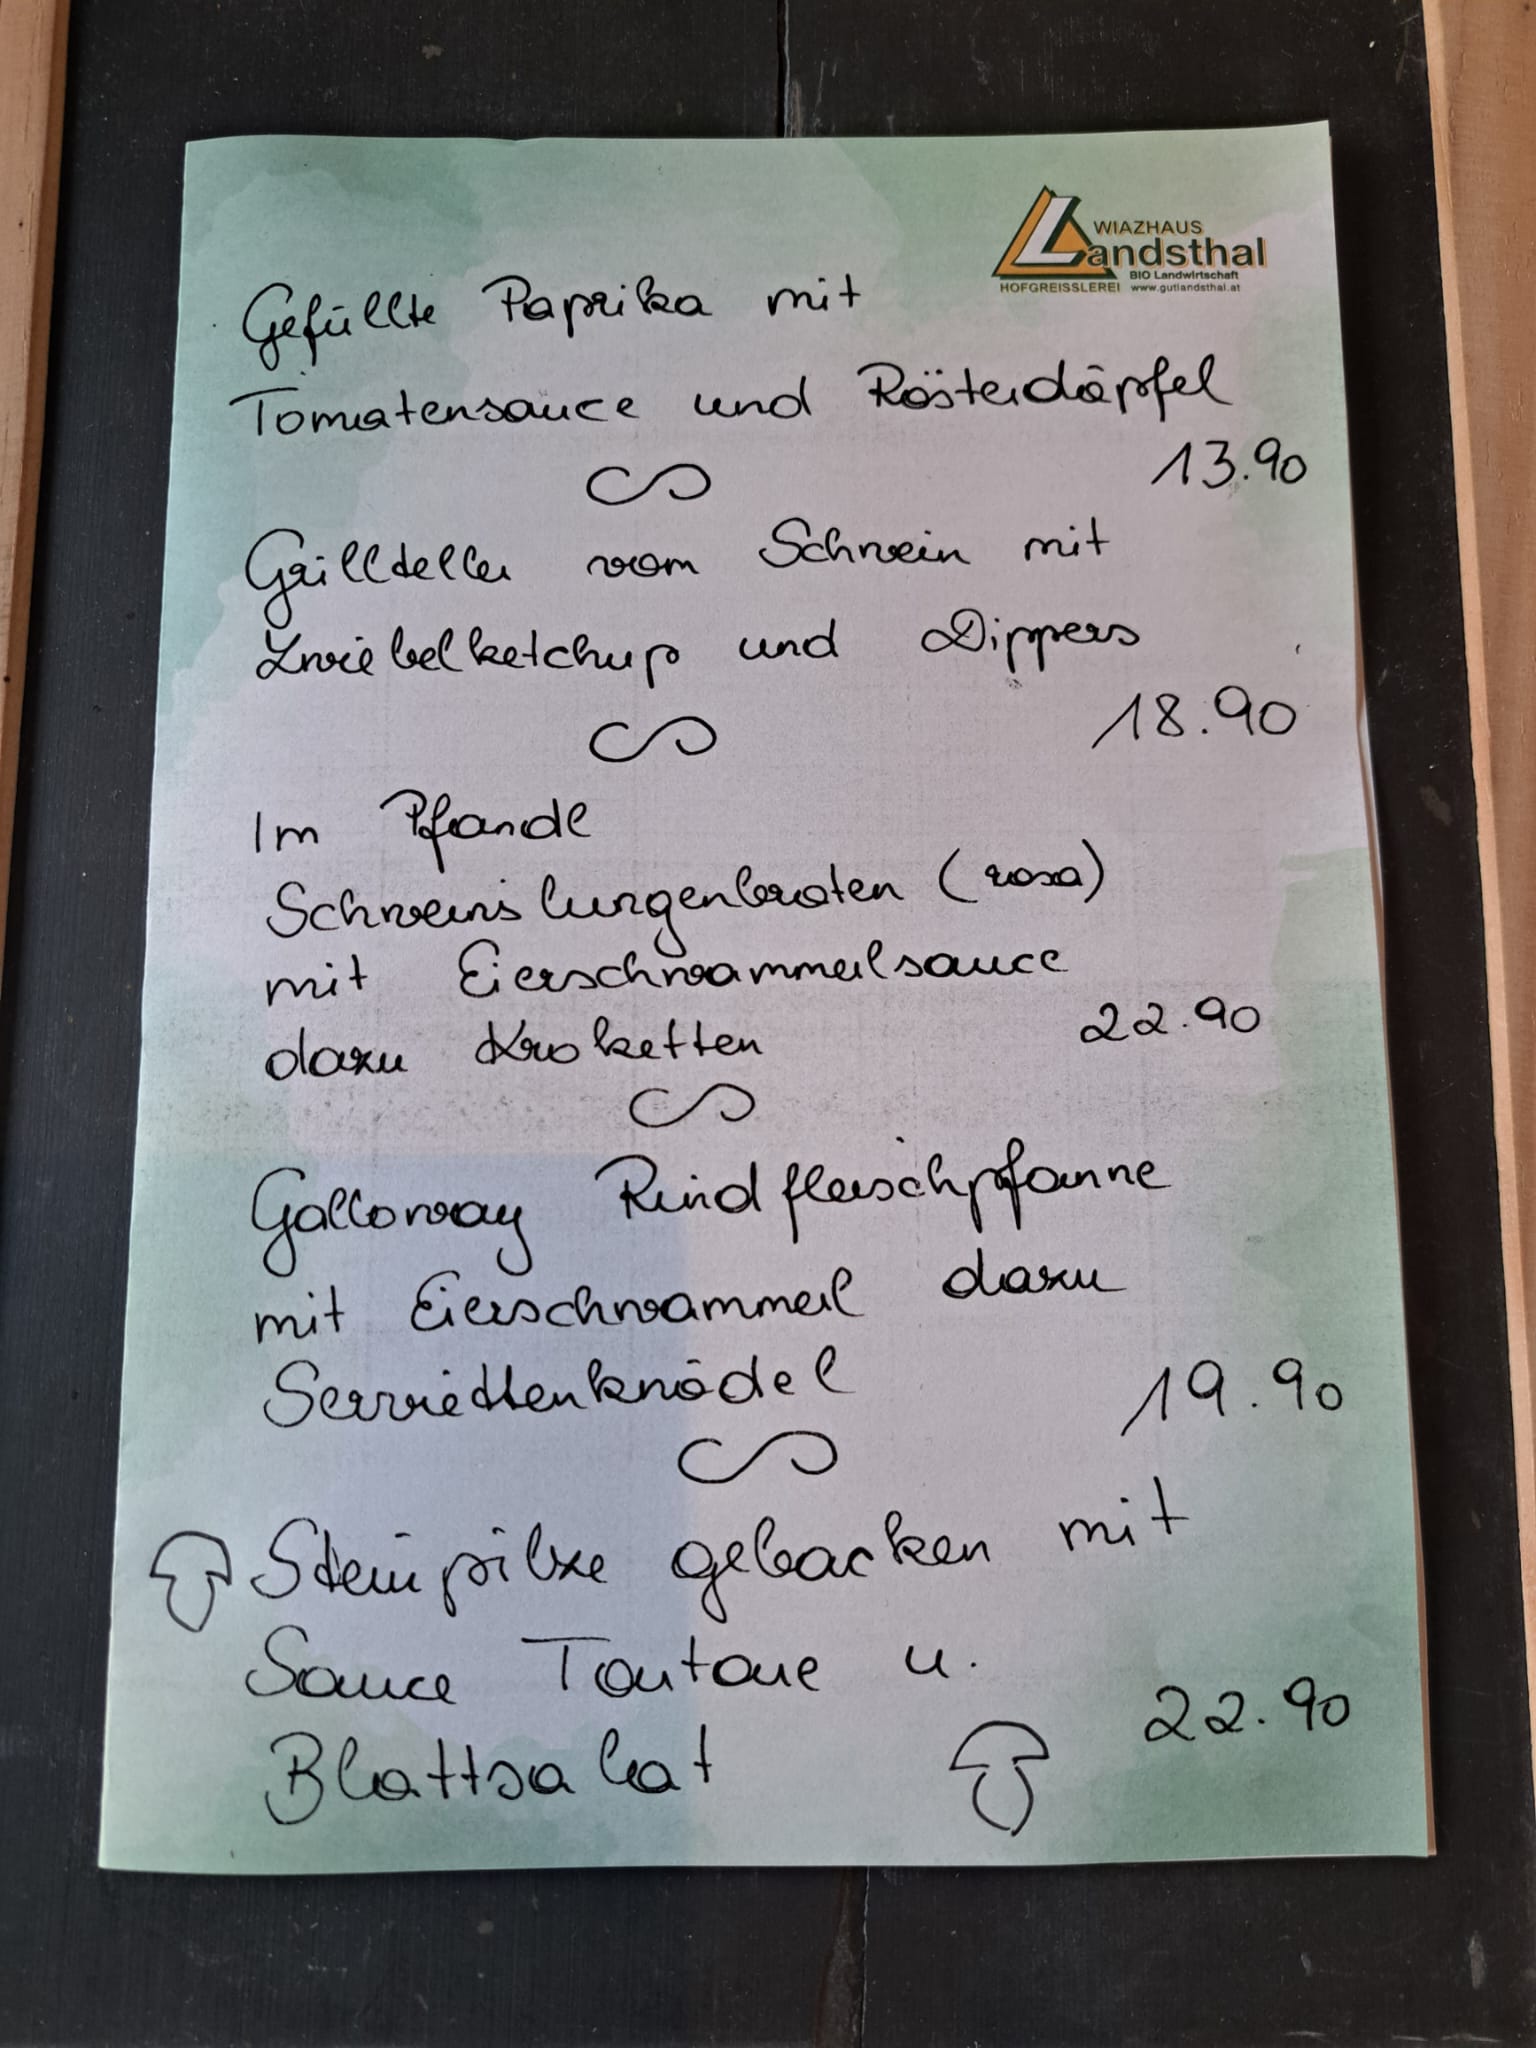 WIAZHAUS
Landsthal
BIO Landwirtschaft
HOFGREISSLEREI www.gutlandsthal.at
Gefüllte Paprika mit
Tomatensauce und Rösterdäpfel
13.90
Grillteller vom Schwein mit
Zwiebelketchup und Dippers
18.90
Im Pfandl
Schweinslungenbraten (rosa)
mit Eierschwammerlsauce
dazu Kroketten 22.90
Galloway Rindfleischpfanne
mit Eierschwammerl dazu
Serviettenknödel 19.90
Steinpilze gebacken mit
Sauce Tartare u.
Blattsalat 22.90